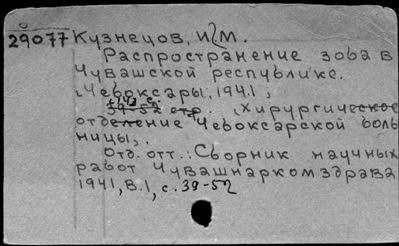 29077 Кузнецов, И.М.
Распространение зоба в
Чувашской республике.
Чебоксары, 1941;
39-52 стр. (Хирургическое
отделение Чебоксарской боль
ницы).
Отд. отт.: Сборник научных
работ Чувашнаркомздрава
1941, В.1, с. 39-52